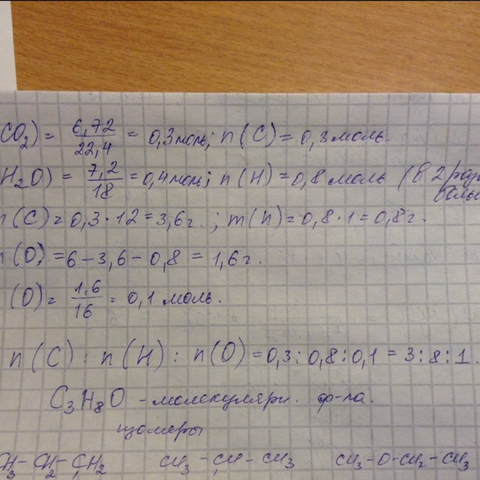 CO₂) = 6,72/22,4 = 0,3 моль; n(C) = 0,3 моль.
H₂O) = 7,2/18 = 0,4 моль; n(H) = 0,8 моль (в 2 раза
(C) = 0,3 · 12 = 3,6 г.; m(H) = 0,8 · 1 = 0,8 г.
(O) = 6 – 3,6 – 0,8 = 1,6 г.
(O) = 1,6/16 = 0,1 моль.
n(C) : n(H) : n(O) = 0,3 : 0,8 : 0,1 = 3 : 8 : 1.
C₃H₈O – молекулярн. ф-ла.
изомеры
CH₃ – CH₂ – CH₂ CH₃ – CH – CH₃ CH₃ – O – CH₂ – CH₃